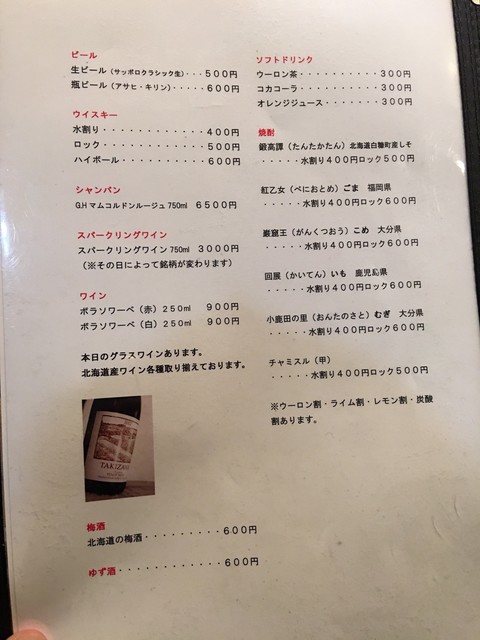 ビール
生ビール（サッポロクラシック生）・・・500円
瓶ビール（アサヒ・キリン）・・・・・600円
ウイスキー
水割り・・・・・・・・・・・・400円
ロック・・・・・・・・・・・・500円
ハイボール・・・・・・・・・・600円
シャンパン
G.H マムコルドンルージュ 750ml 6500円
スパークリングワイン
スパークリングワイン 750ml 3000円
（※その日によって銘柄が変わります）
ワイン
ボラソワーベ（赤）250ml 900円
ボラソワーベ（白）250ml 900円
本日のグラスワインあります。
北海道産ワイン各種取り揃えております。
TAKIZAWA
梅酒
北海道の梅酒・・・・・・・・・600円
ゆず酒・・・・・・・・・・・・600円
ソフトドリンク
ウーロン茶・・・・・・・・・・300円
コカコーラ・・・・・・・・・・300円
オレンジジュース・・・・・・・300円
焼酎
鍛高譚（たんたかたん）北海道白糠町産しそ
・・・・・水割り400円ロック500円
紅乙女（べにおとめ）ごま 福岡県
・・・・・水割り400円ロック600円
巌窟王（がんくつおう）こめ 大分県
・・・・・水割り400円ロック600円
回展（かいてん）いも 鹿児島県
・・・・・水割り400円ロック600円
小鹿田の里（おんたのさと）むぎ 大分県
・・・・・水割り400円ロック600円
チャミスル（甲）
・・・・・水割り400円ロック500円
※ウーロン割・ライム割・レモン割・炭酸
割あります。